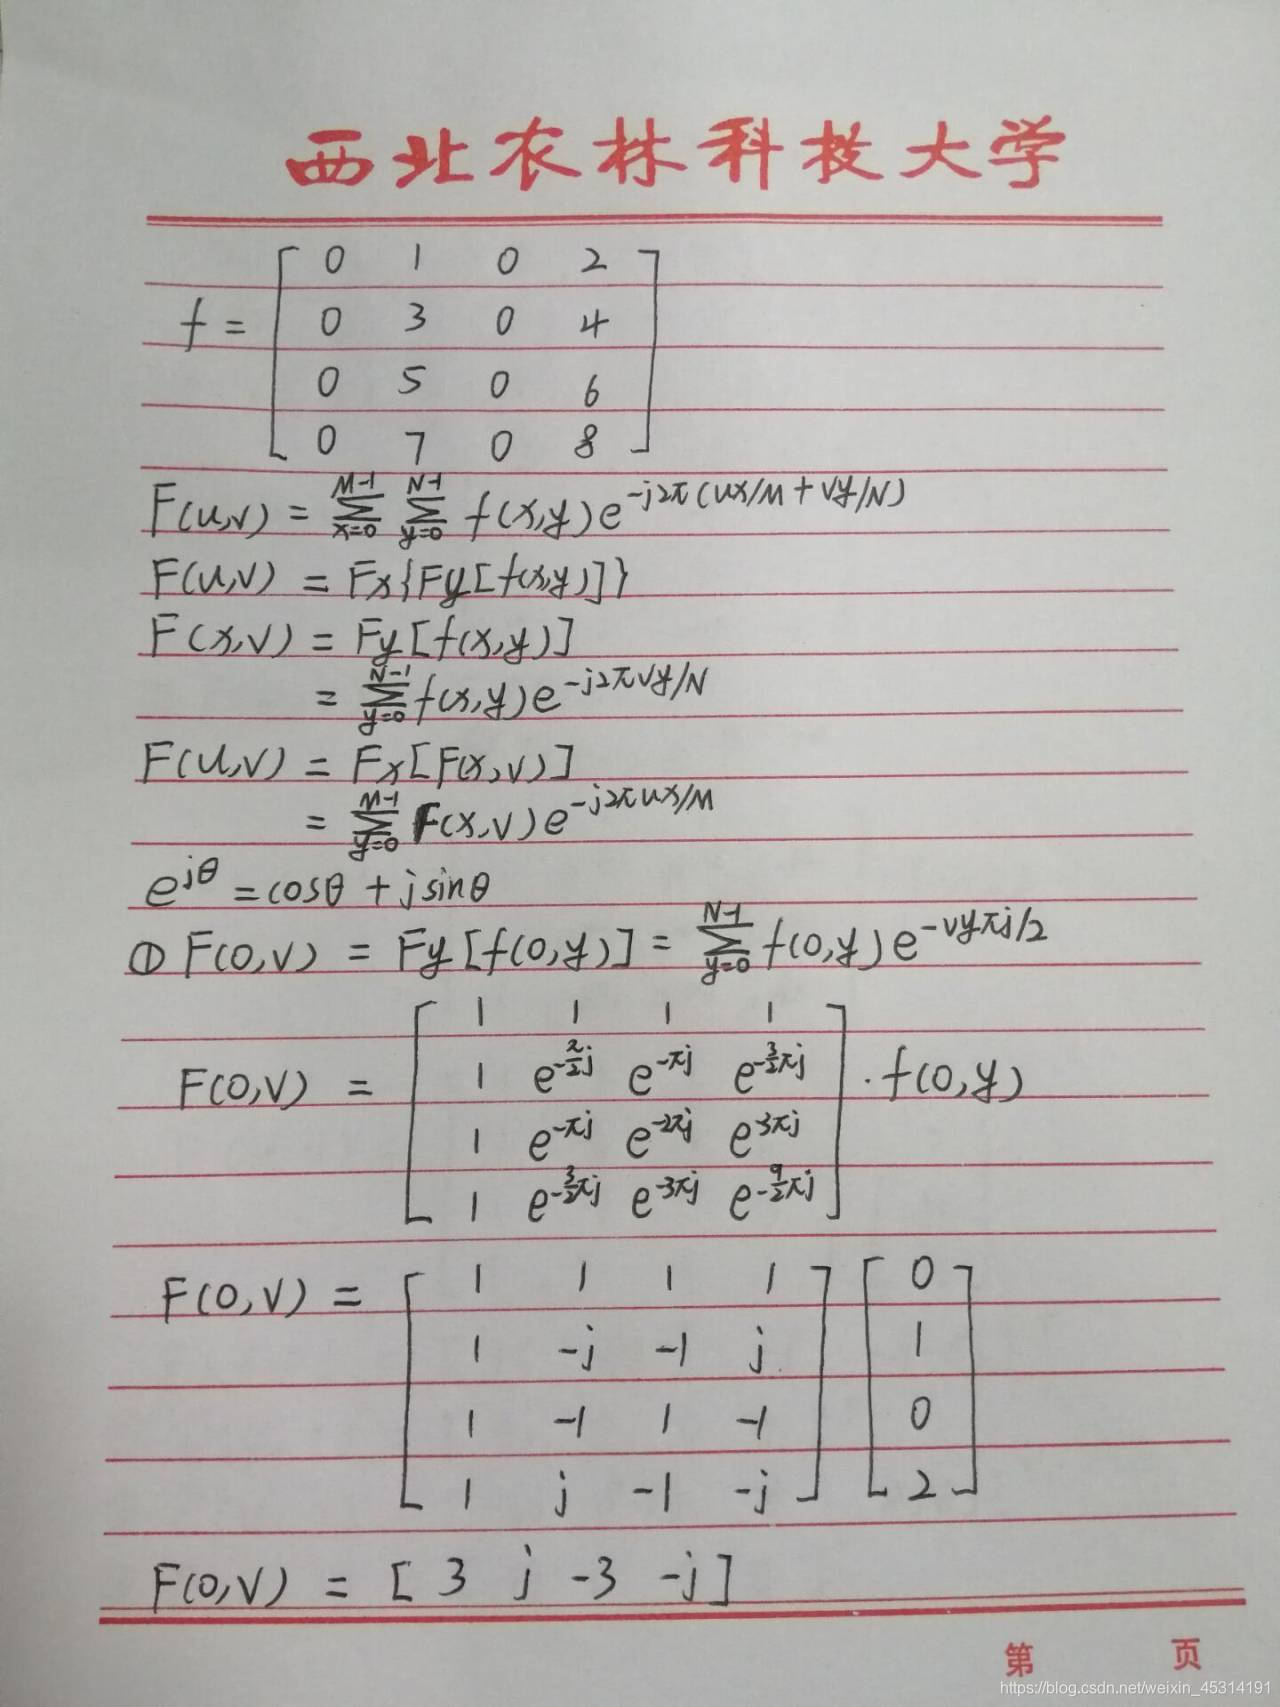 西北农林科技大学
f = [ 0 1 0 2
0 3 0 4
0 5 0 6
0 7 0 8 ]
F(u,v) = ∑_{x=0}^{M-1} ∑_{y=0}^{N-1} f(x,y)e^{-j2π(ux/M+vy/N)}
F(u,v) = Fx{Fy[f(x,y)]}
F(x,v) = Fy[f(x,y)]
= ∑_{y=0}^{N-1} f(x,y)e^{-j2πvy/N}
F(u,v) = Fx[F(x,v)]
= ∑_{y=0}^{M-1} F(x,v)e^{-j2πux/M}
e^{jθ} = cosθ + jsinθ
① F(0,v) = Fy[f(0,y)] = ∑_{y=0}^{N-1} f(0,y)e^{-vyπj/2}
F(0,v) = [ 1 1 1 1
1 e^{-π/2 j} e^{-πj} e^{-3/2 πj}
1 e^{-πj} e^{-2πj} e^{-3πj}
1 e^{-3/2 πj} e^{-3πj} e^{-9/2 πj} ] · f(0,y)
F(0,v) = [ 1 1 1 1 ] [ 0
1 -j -1 j 1
1 -1 1 -1 0
1 j -1 -j 2 ]
F(0,v) = [ 3 j -3 -j ]
第 页
https://blog.csdn.net/weixin_45314191